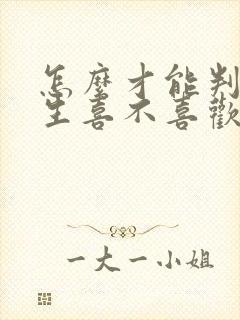 怎麼才能判
生喜不喜歡
一大一小姐